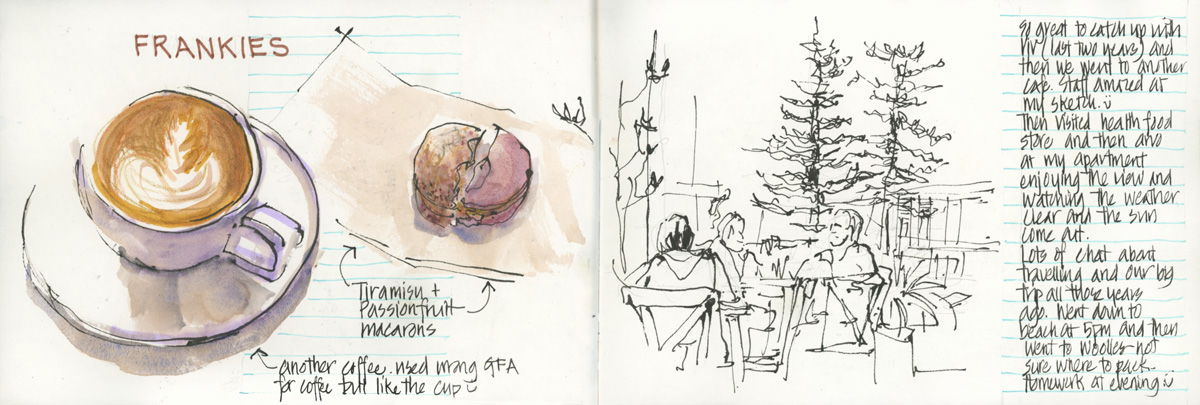 FRANKIES
Tiramisu +
Passionfruit
macarons
another coffee. used wrong QFA
for coffee but like the cup
So great to catch up with
Viv (last two years) and
then we went to another
cafe. Staff amazed at
my sketch.
Then visited health food
store and then
at my apartment
enjoying the view and
watching the weather
clear and the sun
come out.
Lots of chat about
travelling and our big
trip all those years
ago. Went down to
beach at 5pm and then
went to woolies-not
sure where to pack.
Homework at evening